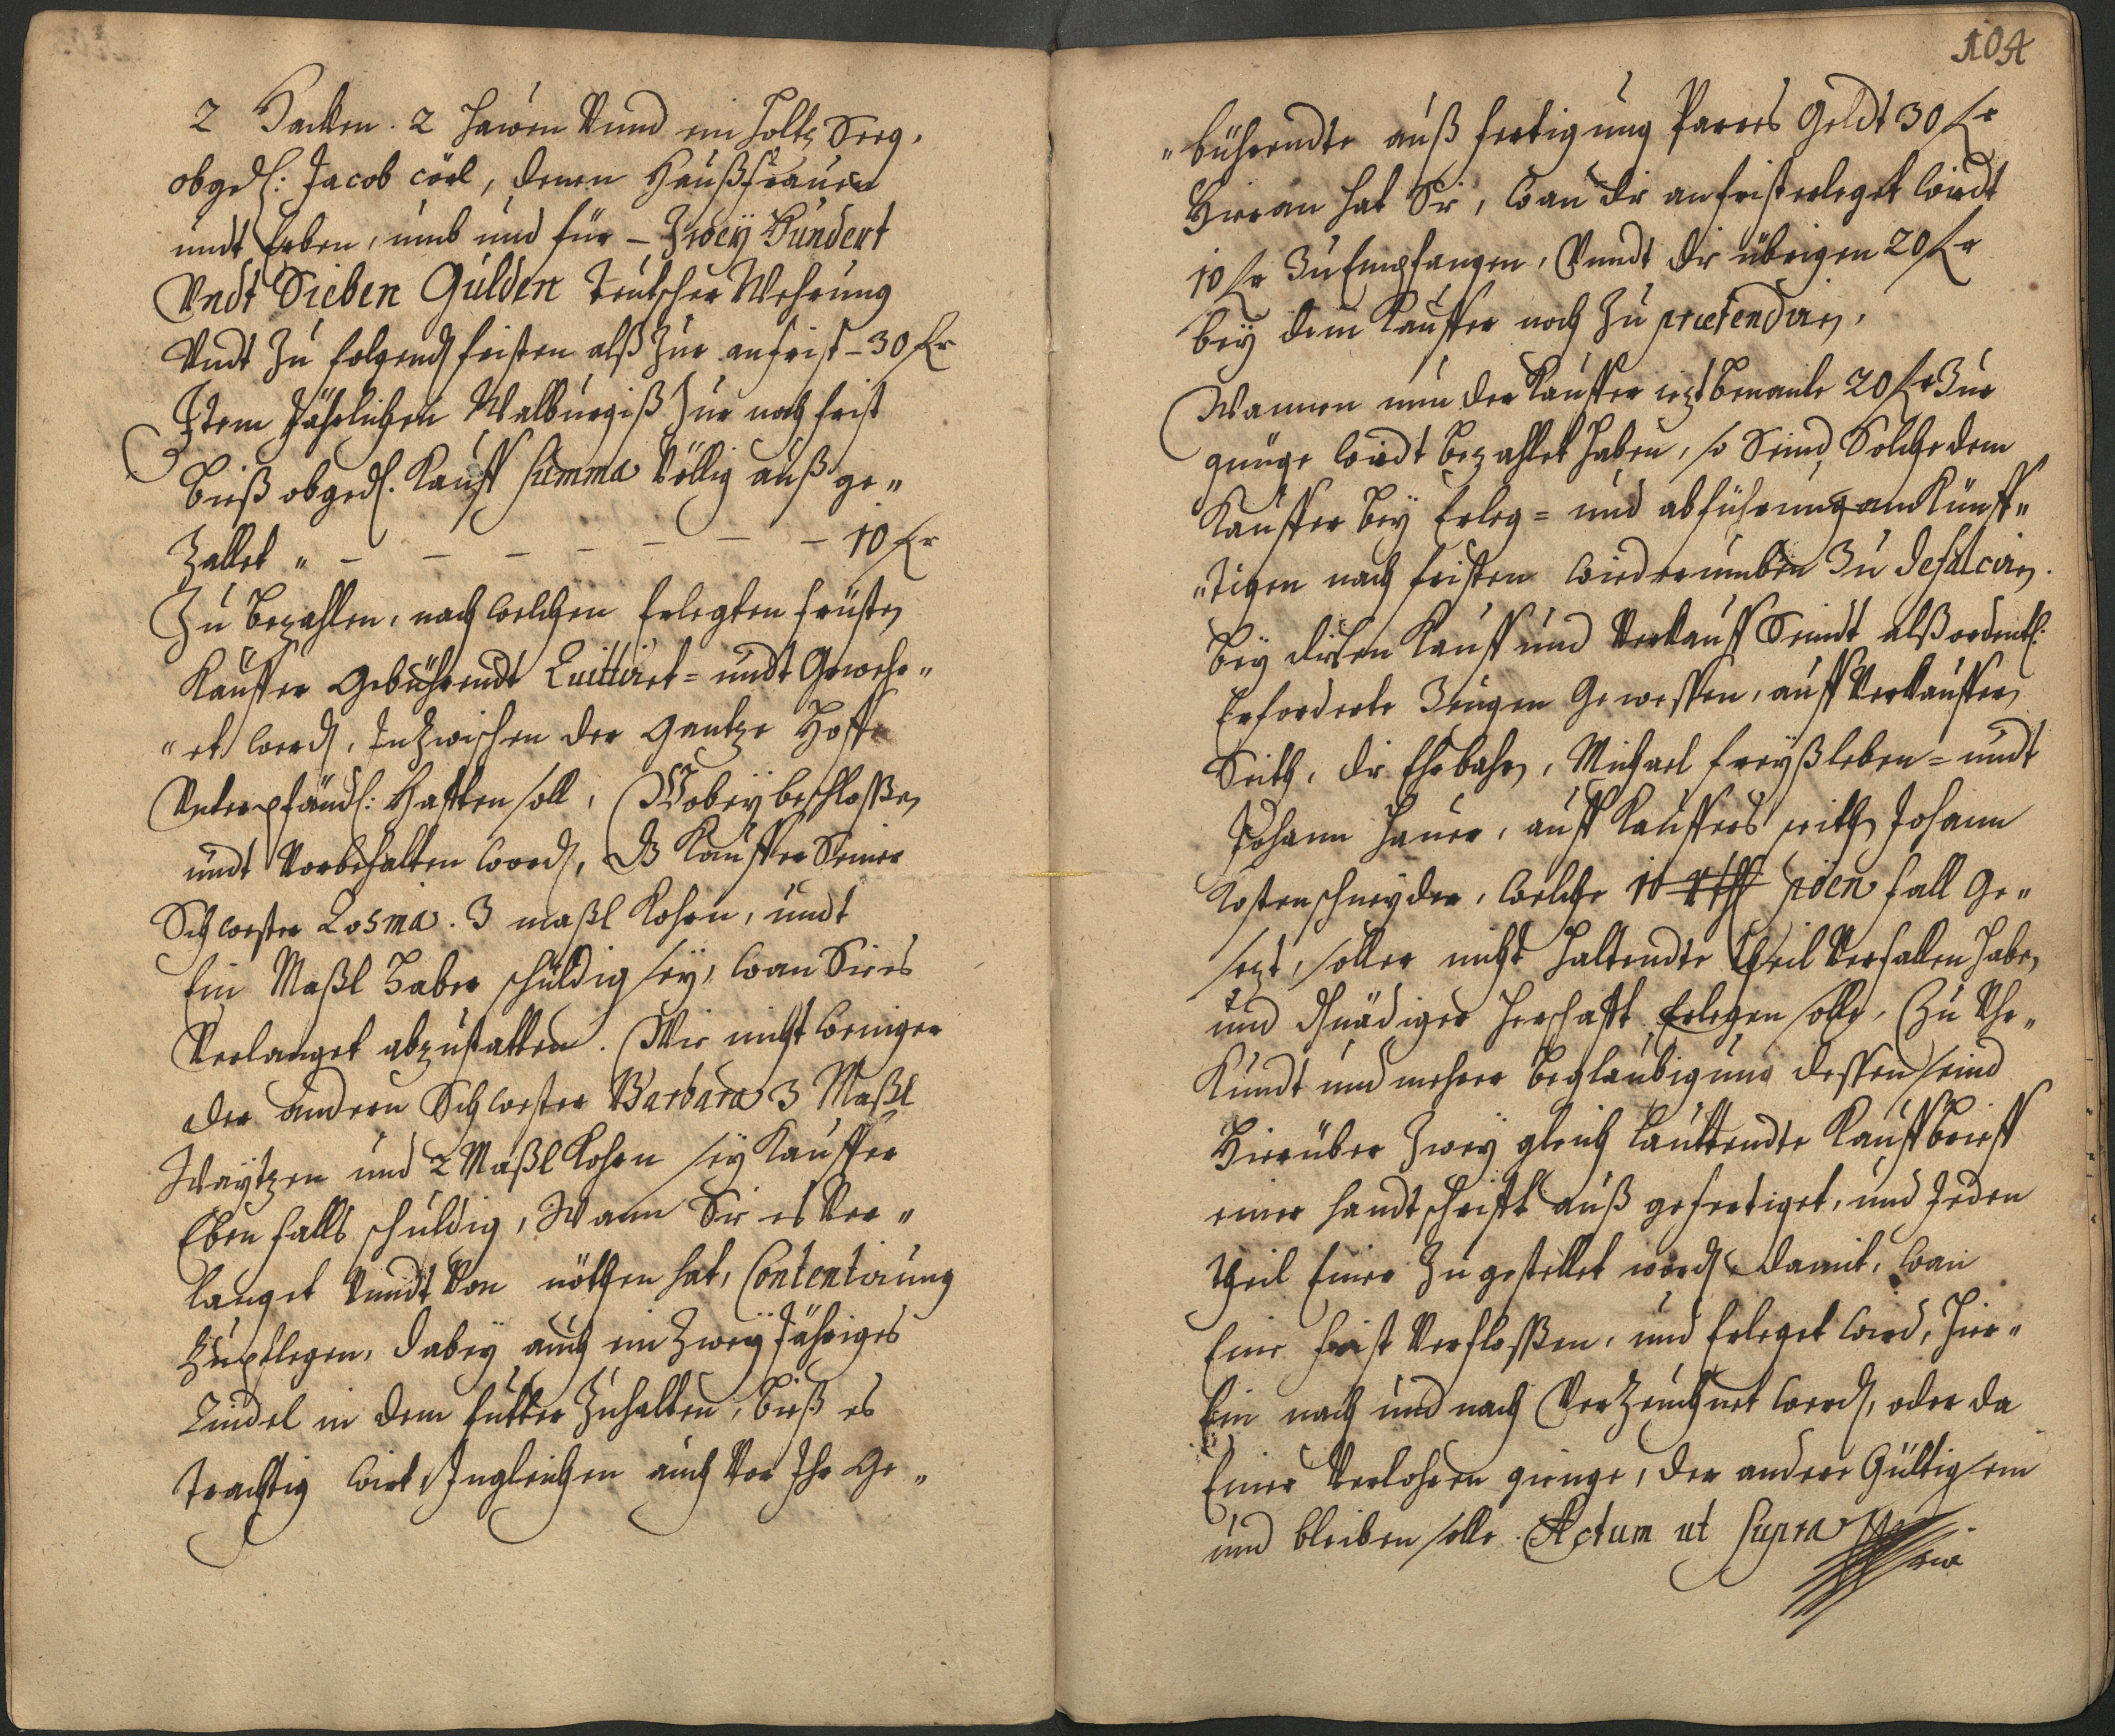 2 Hacken. 2 Hawen Vnnd ein Holtz Seeg,
obged: Jacob Cörl, denen Haußfrauen
undt Erben, umb und für – Zweÿ Hundert
Vndt Sieben Gulden Teutscher Wehrung
Vndt Zu folgend fristen alß Zur anfrist – 30 fr
Item Jährlichen Walburgiß Zur nach frist
bieß obged. Kauff Summa Völlig auß ge„
Zallet „ – – – – – – – 10 fr
Zu bezahlen, nach welchen Erlegten früsten
Kauffer Gebührendt Quittiret = undt Gewehr„
„et werd, Inzwischen der Gantze Hoff
Vnterpfändl: Hafften soll, Wobeÿ beschlossen
undt Vorbehalten word, dz Kauffer Seiner
Schwester Cosma. 3 maßl Kohrn, undt
Ein Maßl Haber schuldig seÿ, wan Sie es
Verlanget abzustatten. Wie nicht weniger
der andern Schwester Barbara 3 Maßl
Waytzen und 2 Maßl Kohrn seÿ Kauffer
Ebenfalls schuldig, Wann Sie es Ver„
langet Vnndt Von nöthen hat, Contentirung
Zupflegen, dabeÿ auch ein Zweÿ Jähriges
Rindel in dem futter Zuhalten, bieß es
trachtig wirt, Ingleichen auch Vor Ihr Ge„
104
„bührendte auß fertigung Pares Geldt 30 fr
Hieran hat Sie, wan die anfrist erleget wirdt
10 fr Zu Empfangen, Vnndt die übrigen 20 fr
beÿ dem Kauffer noch Zu prætendiren,
Wannen nun der Kauffer iezt benante 20 fr Zur
gnüge wirdt bezahlet haben, so Seind Solche dem
Kauffer beÿ Erleg = und abführung an Künff„
„tigen nach fristen wiederumben Zu defalciren.
beÿ diesen Kauff und Verkauff Seindt alß ordentl:
Erforderte Zeugen Gewessen, auff Verkauffers
Seith, die Ehrbahren, Michael freÿßleben = undt
Johann Hauer, auff Kauffers seith Johann
Kostenschneyder, welche 10 rthl pöen fall Ge„
sezt, so der nicht haltendte theil Verfallen haben
und Gnädiger Herschafft Erlegen solle, Zu Vhr„
Kundt und mehrer beglaubigung dessen seind
Hierüber Zweÿ gleich lauttendte Kauffbrieff
einer handtschrifft auß gefertiget, und Jeden
theil Einer Zu gestellet word, damit, wan
Eine frist Verflossen, und Erleget wird, hier„
Ein nach und nach Verzeichnet werd, oder da
Einer Verlohren gienge, der andere Gültig sein
und bleiben solle. Actum ut Supra